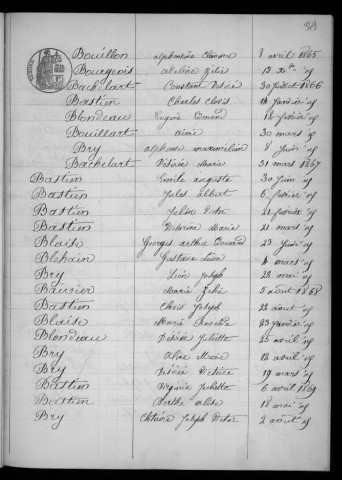 Bouillon alphonsine Eléonore 3 avril 1865
Bourgeois Zélie 13 Xbre id
Bachelart Constant Désiré 30 juillet 1866
Bastien Charles Clovis 14 Janvier id
Blondeau Eugène Edmond 18 février id
Bouillart aimé 30 mars id
Bry alphonse maximilien 8 Juin id
Bachelart Désirée Marie 31 mars 1867
Bastien Emile auguste 30 Juin id
Bastien Jules albert 6 février id
Bastien Julien Victor 21 février id
Bastien Victorine Marie 21 mars id
Blaise Georges arthur Edouard 23 Juin id
Blehain Gustave Léon 4 mars id
Bry Léon Joseph 28 mai id
Marie Zélie 5 août 1868
Bastien Clovis Joseph 28 août id
Blaise Marie 23 Janvier id
Blondeau Désirée Juliette 25 avril id
Bry Aline Marie 12 avril id
Bry Désiré 19 mars id
Bastien Virginie Juliette 6 avril 1869
Bastien Berthe alida 18 mai id
Bry Joseph Victor 2 août id